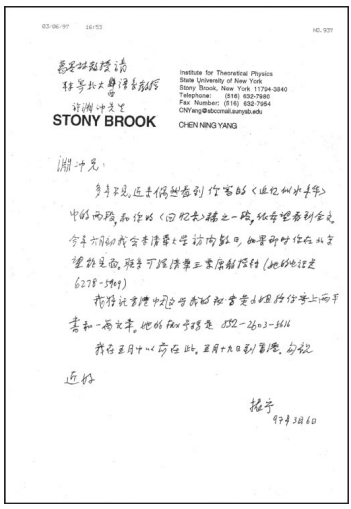 03/06/97 16/53 NO. 937
教授请
转寄北大 教授
许渊冲先生
STONY BROOK
Institute for Theoretical Physics
State University of New York
Stony Brook, New York 11794-3840
Telephone: (516) 632-7980
Fax Number: (516) 632-7954
CNYang@sbccmail.sunysb.edu
CHEN NING YANG
渊冲兄:
多年不见。近来偶然看到你写的《追忆似水年华》
中的两段,和你的《回忆录》稿之一段,很希望看到全文。
今年六月初我会来清华大学访问数日,如果那时你在北京
望能见面。联系可经清华 教授转(她的电话是
6278-5909)
我将托香港中文大学我的秘书黄小姐给你寄上两本
书和一两文章。她的FAX号码是 852-2603-5616
我在五月中以前在此。五月十九日到香港。匆祝
近好
振宁
97年3月6日